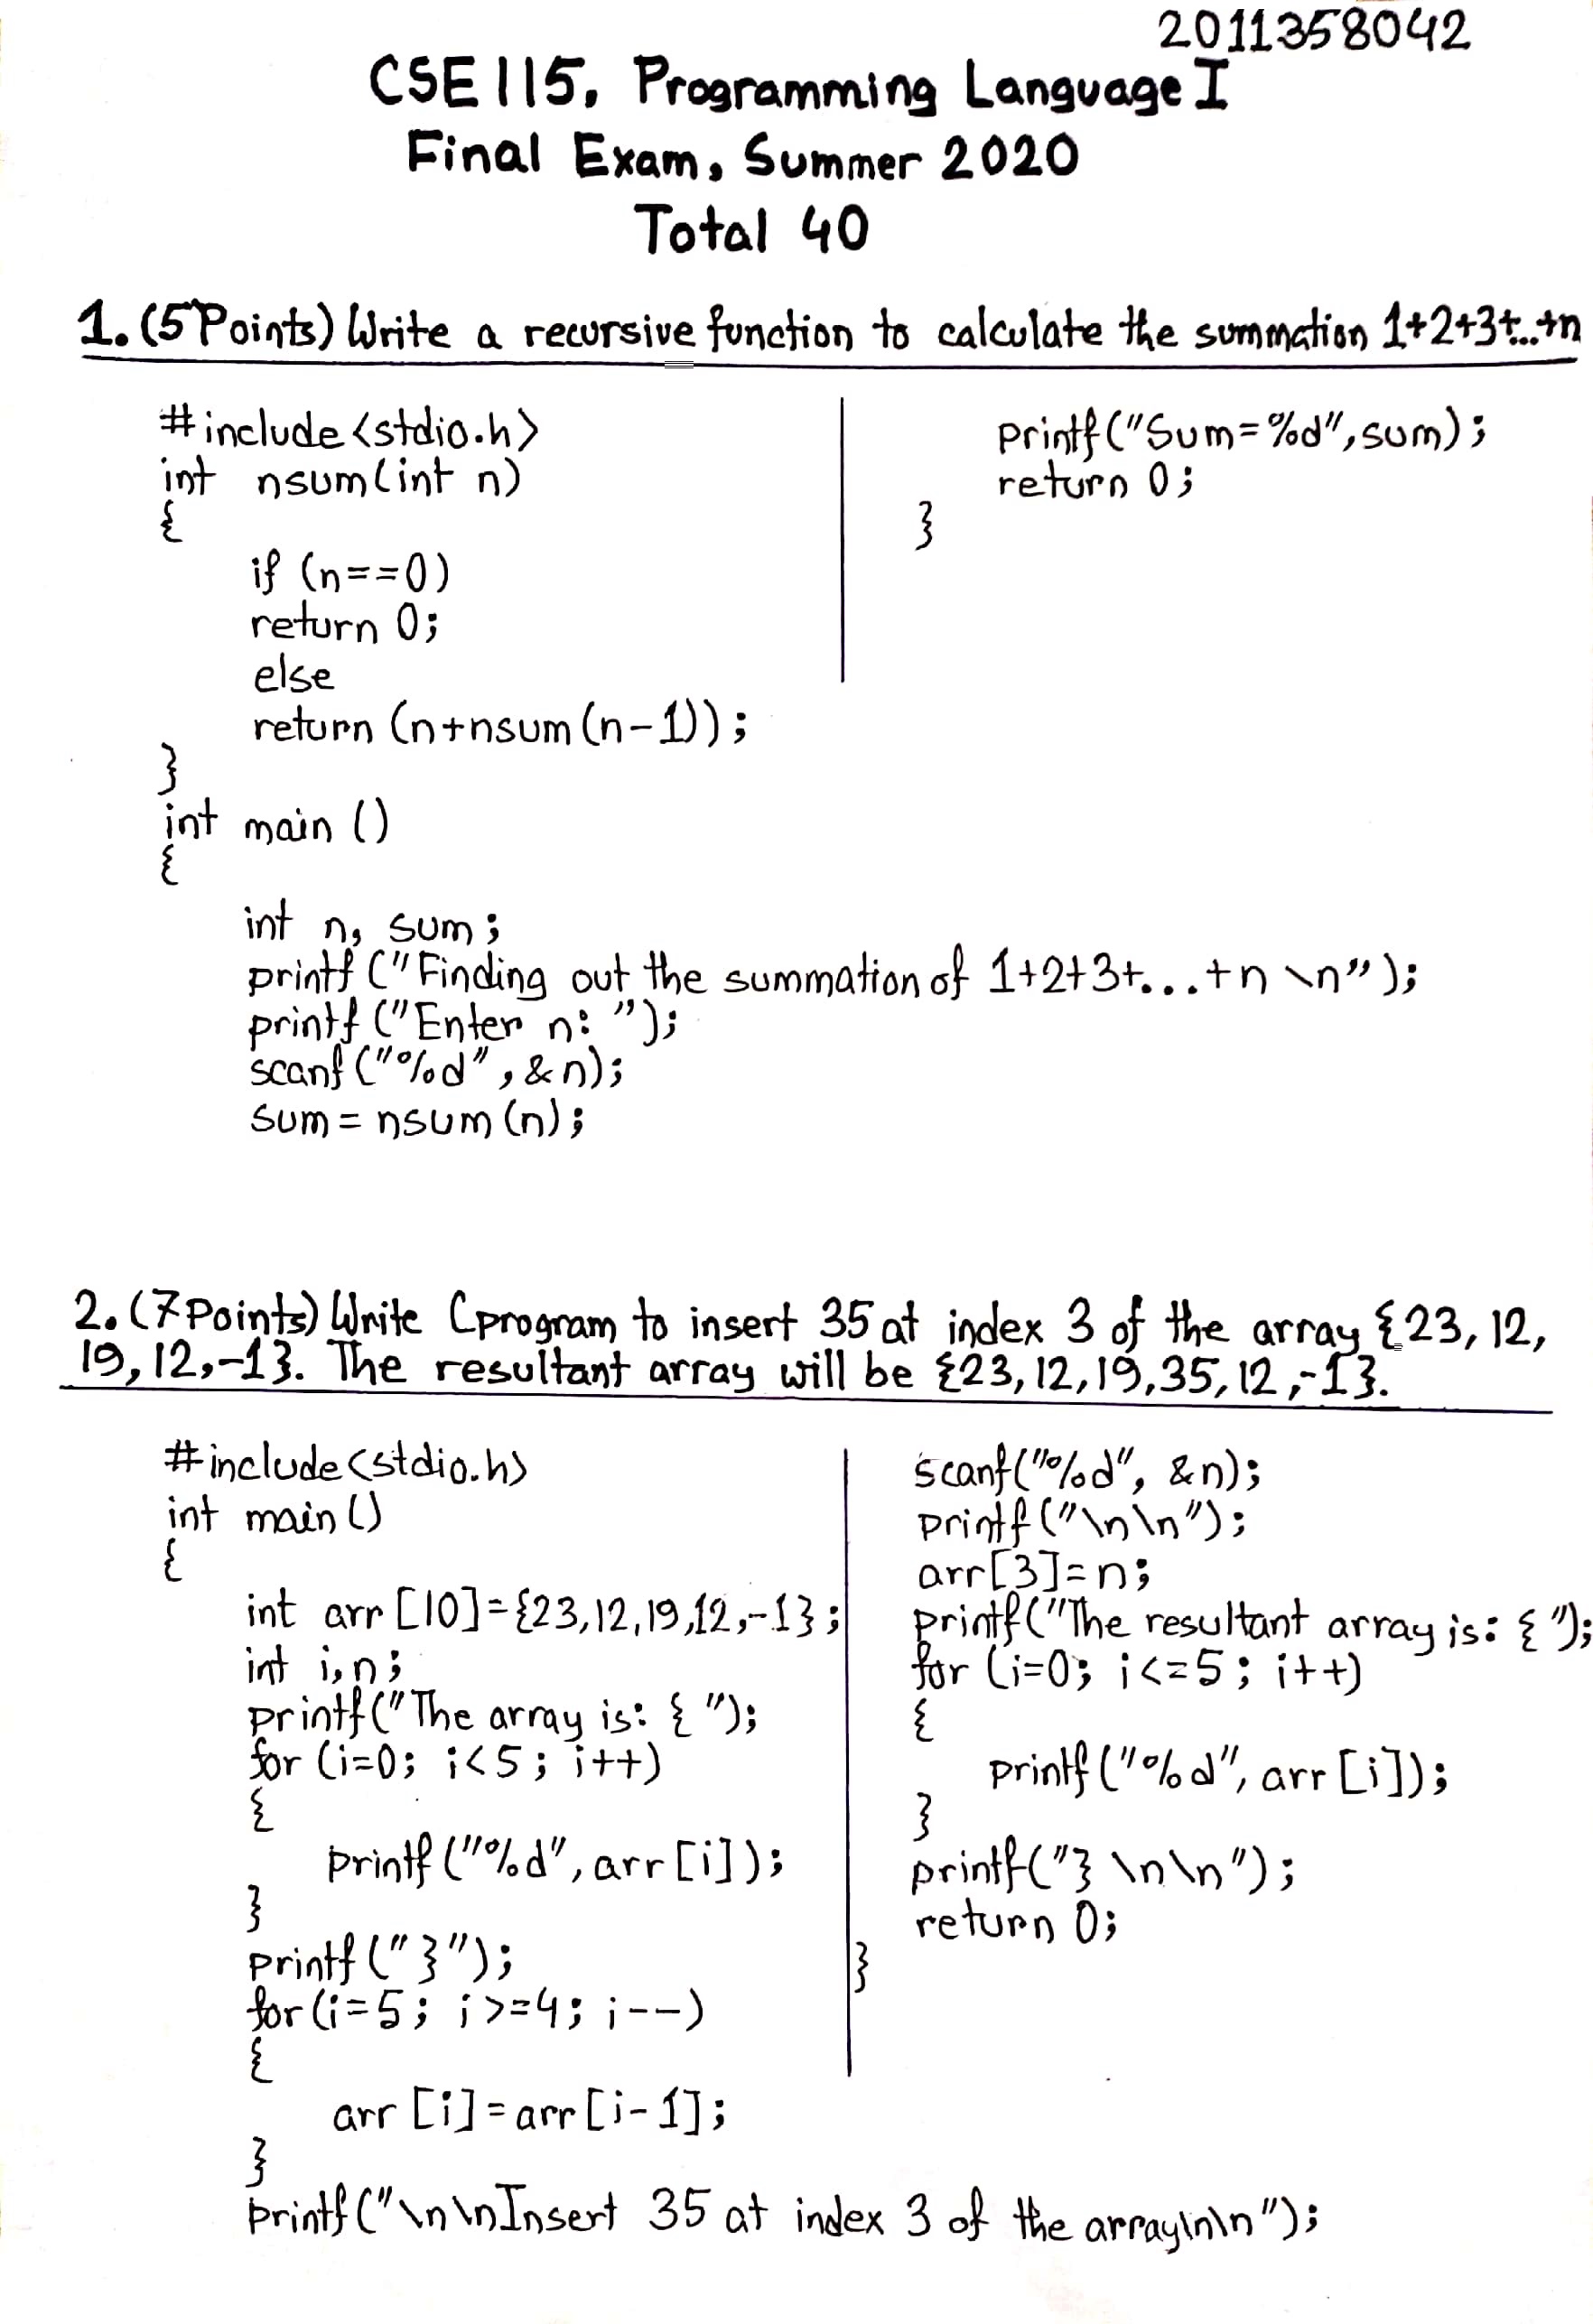 2011358042
CSE 115, Programming Language I
Final Exam, Summer 2020
Total 40
1. (5 Points) Write a recursive function to calculate the summation 1+2+3+...+n
#include <stdio.h>
int nsum(int n)
{
if (n==0)
return 0;
else
return (n+nsum(n-1));
}
int main ()
{
int n, sum;
printf ("Finding out the summation of 1+2+3+...+n \n");
printf ("Enter n: ");
scanf ("%d", &n);
sum = nsum (n);
printf ("Sum=%d", sum);
return 0;
}
2. (7 Points) Write C program to insert 35 at index 3 of the array {23, 12,
19, 12, -1}. The resultant array will be {23, 12, 19, 35, 12, -1}.
#include <stdio.h>
int main ()
{
int arr [10]={23,12,19,12,-1};
int i,n;
printf("The array is: { ");
for (i=0; i<5; i++)
{
printf ("%d", arr [i]);
}
printf (" }");
for (i=5; i>=4; i--)
{
arr [i]=arr [i-1];
}
printf ("\n\nInsert 35 at index 3 of the array\n\n");
scanf("%d", &n);
printf ("\n\n");
arr[3]=n;
printf("The resultant array is: { ");
for (i=0; i<=5; i++)
{
printf ("%d", arr [i]);
}
printf("} \n\n");
return 0;
}